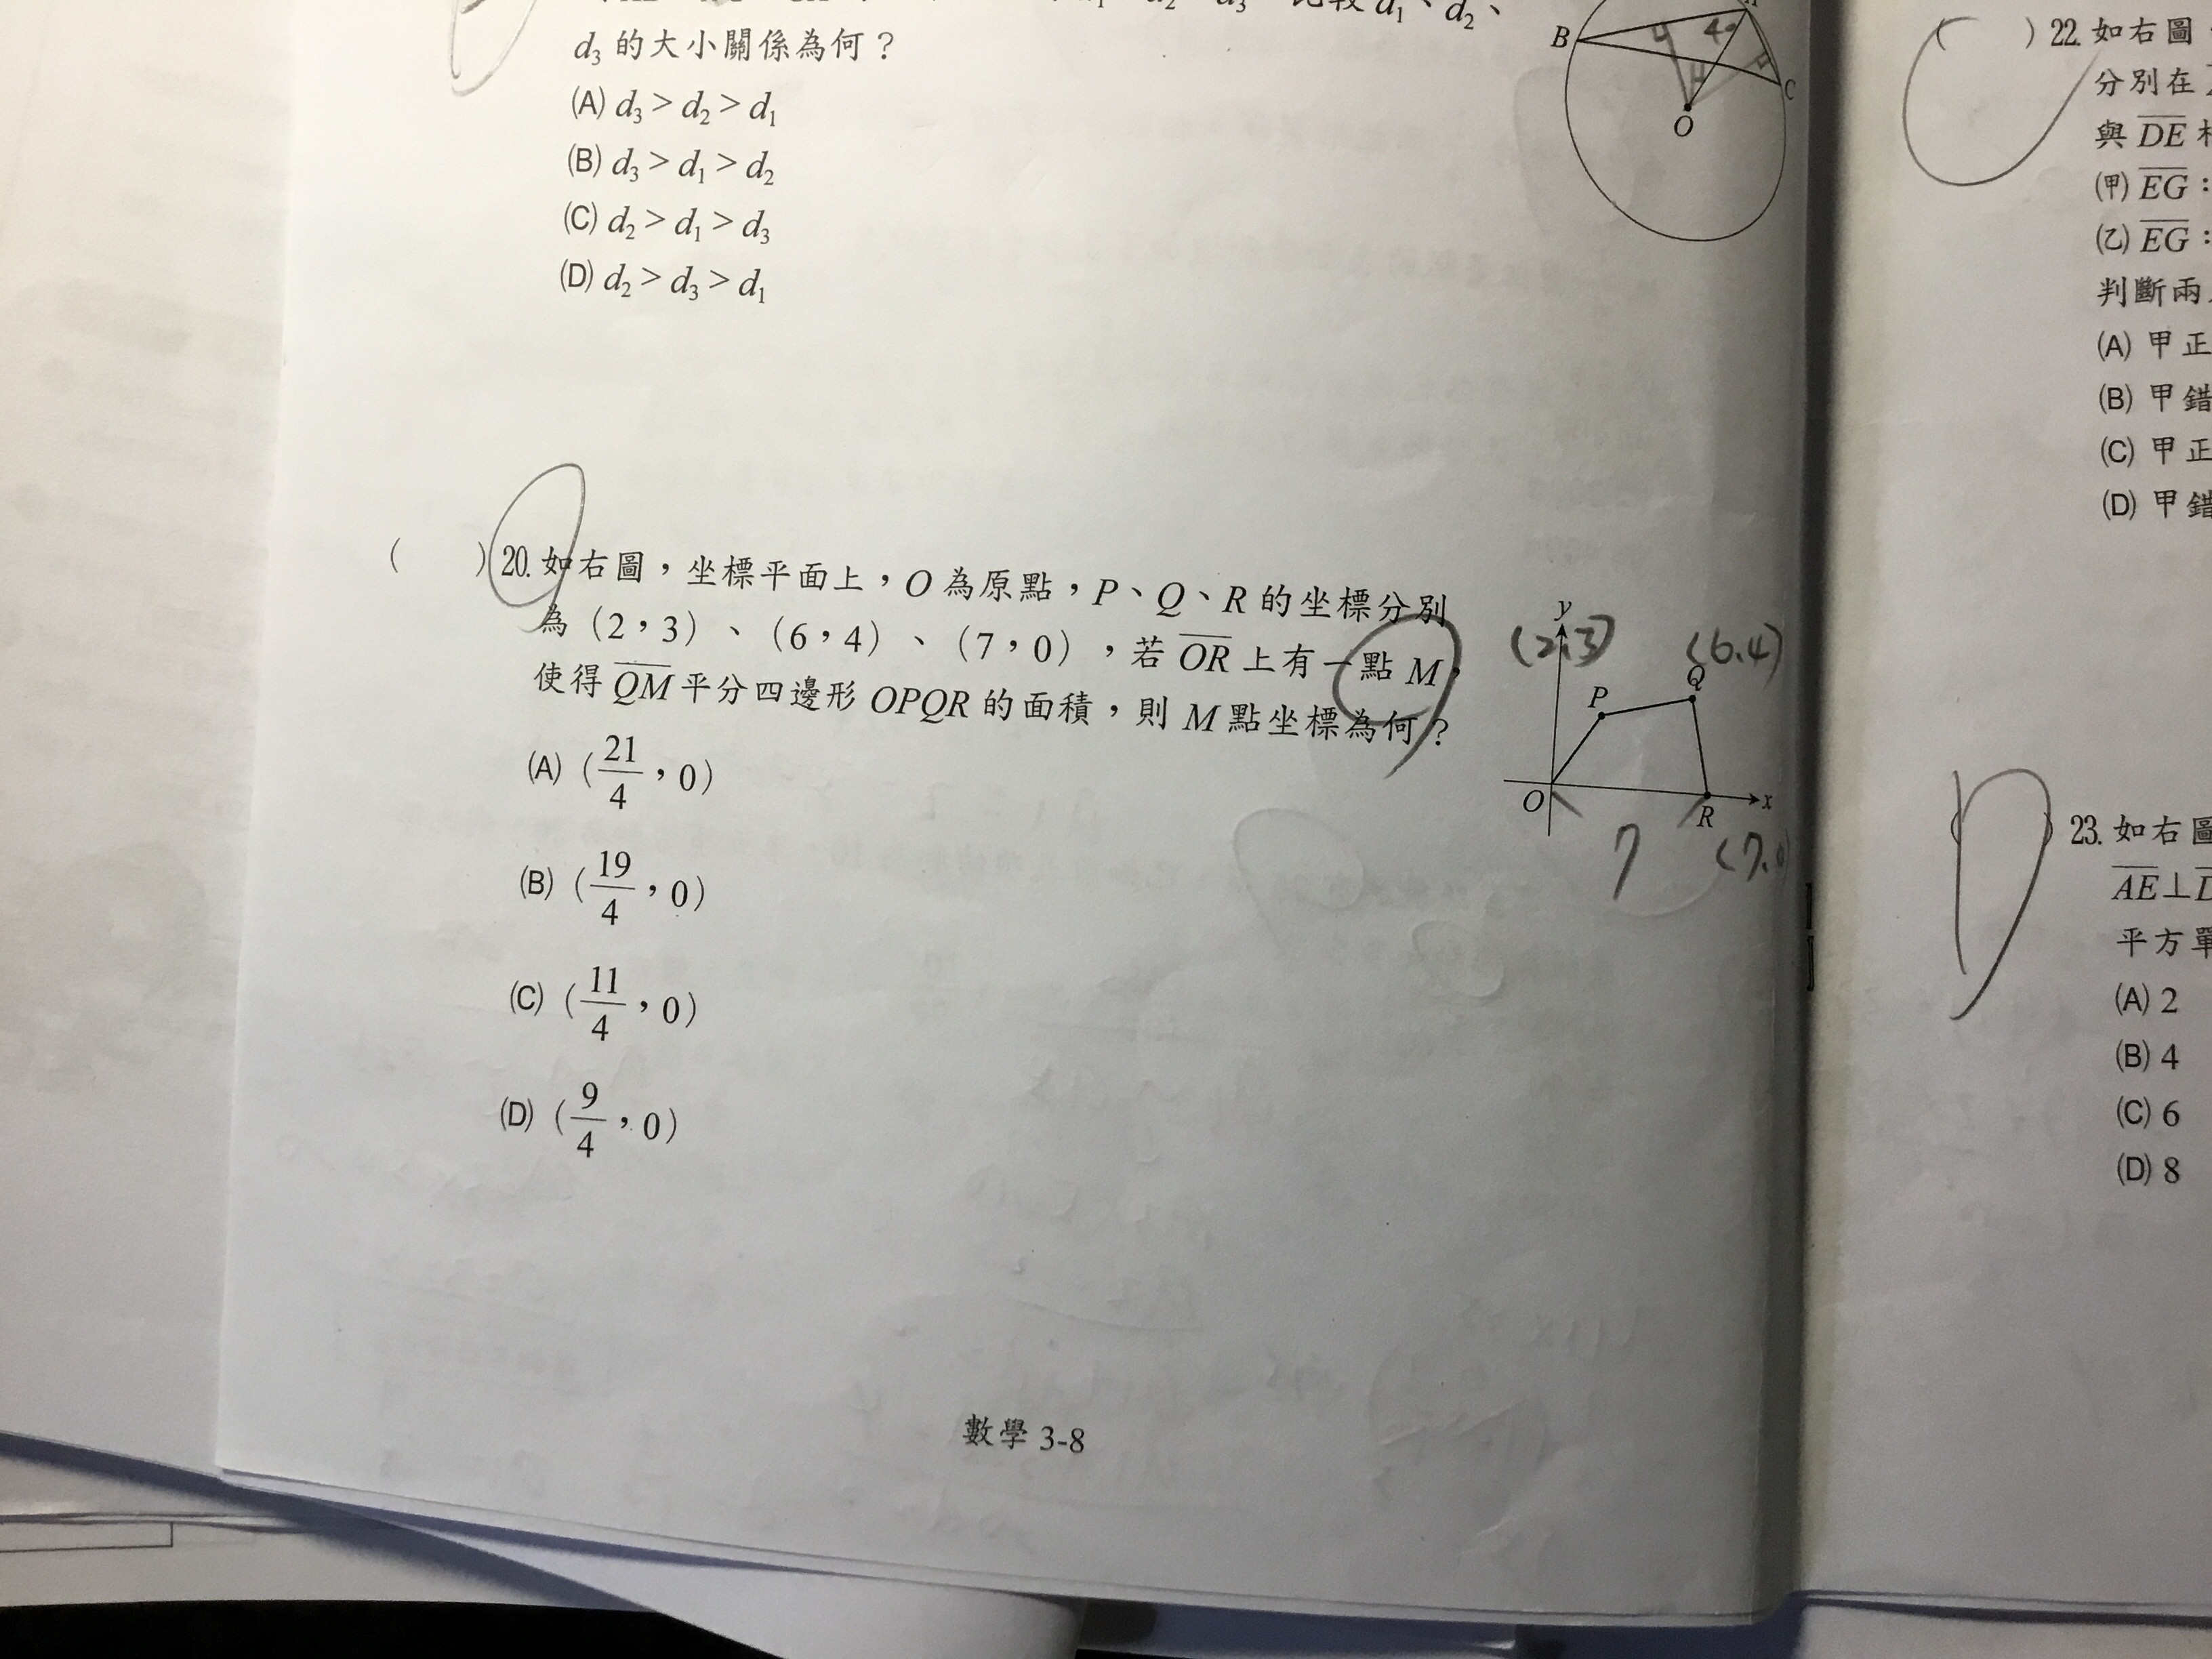 d₃ 的大小關係為何？
(A) d₃ > d₂ > d₁
(B) d₃ > d₁ > d₂
(C) d₂ > d₁ > d₃
(D) d₂ > d₃ > d₁
B
4
C
O
( ) 20. 如右圖，坐標平面上，O 為原點，P、Q、R 的坐標分別
為（2，3）、（6，4）、（7，0），若 OR 上有一點 M，
使得 QM 平分四邊形 OPQR 的面積，則 M 點坐標為何？
(A)（21/4，0）
(B)（19/4，0）
(C)（11/4，0）
(D)（9/4，0）
y
(2.3)
(6.4)
Q
P
O
R
x
7
(7.0)
數學 3-8
( ) 22. 如右圖
分別在
與 DE
(甲) EG：
(乙) EG：
判斷兩
(A) 甲正
(B) 甲錯
(C) 甲正
(D) 甲錯
23. 如右圖
AE⊥
平方單
(A) 2
(B) 4
(C) 6
(D) 8